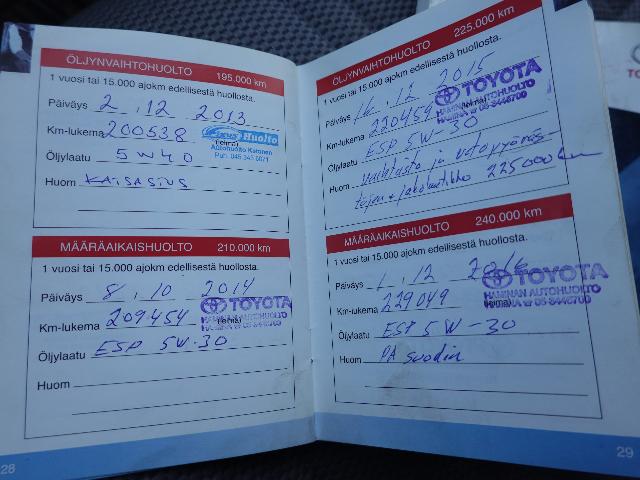 ÖLJYNVAIHTOHUOLTO 195.000 km
1 vuosi tai 15.000 ajokm edellisestä huollosta.
Päiväys 2.12 2013
Km-lukema 200538 (leima)
Huolto
Autohuolto Katonen
Puh. 045 343 0071
Öljylaatu 5W40
Huom
MÄÄRÄAIKAISHUOLTO 210.000 km
1 vuosi tai 15.000 ajokm edellisestä huollosta.
Päiväys 8.10 2014
Km-lukema 209454 (leima)
TOYOTA
HAMINAN AUTOHUOLTO
Öljylaatu ESP 5W-30
Huom
28
ÖLJYNVAIHTOHUOLTO 225.000 km
1 vuosi tai 15.000 ajokm edellisestä huollosta.
Päiväys 16.12 2015
Km-lukema 220459 (leima)
TOYOTA
HAMINAN AUTOHUOLTO
Öljylaatu ESP 5W-30
Huom ja
225000 km
MÄÄRÄAIKAISHUOLTO 240.000 km
1 vuosi tai 15.000 ajokm edellisestä huollosta.
Päiväys 1.12 2016
Km-lukema 229049 (leima)
TOYOTA
HAMINAN AUTOHUOLTO
Öljylaatu ESP 5W-30
Huom PA suodin
29